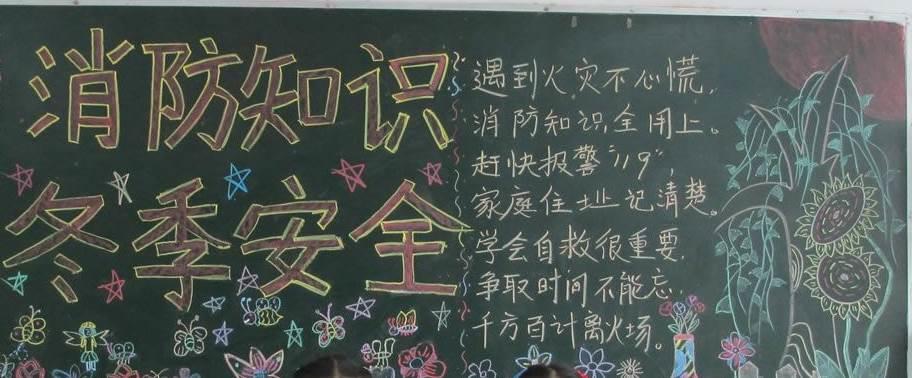 消防知识
冬季安全
遇到火灾不心慌，
消防知识全用上。
赶快报警“119”，
家庭住址记清楚。
学会自救很重要，
争取时间不能忘，
千方百计离火场。